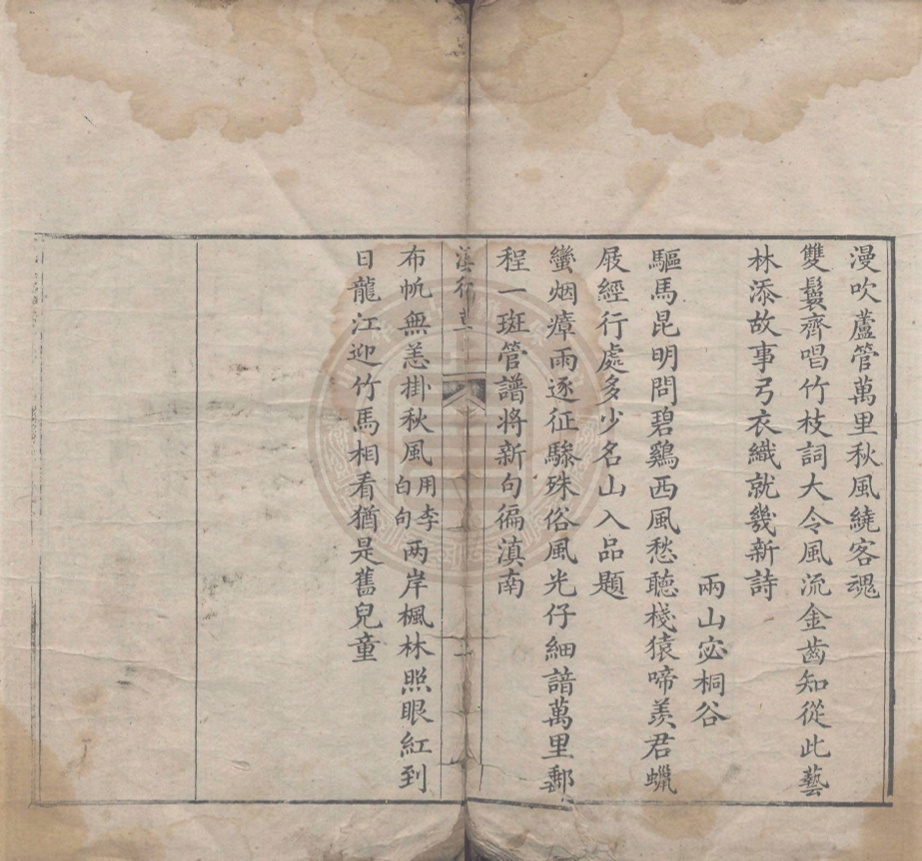 漫吹蘆管萬里秋風繞客魂
雙鬟齊唱竹枝詞大令風流金齒知從此藝
林添故事弓衣織就幾新詩
兩山宓桐谷
驅馬昆明問碧鷄西風愁聽棧猿啼羨君蠟
屐經行處多少名山入品題
蠻烟瘴雨逐征驂殊俗風光仔細諳萬里郵
程一斑管譜將新句徧滇南
布帆無恙掛秋風用李白句两岸楓林照眼紅到
日龍江迎竹馬相看猶是舊兒童